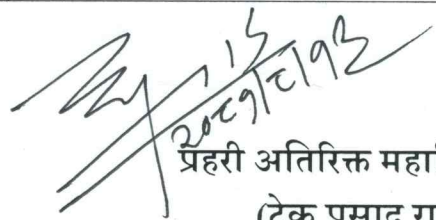 २०८१/८/१३
प्रहरी अतिरिक्त महा
(टेक प्रसाद